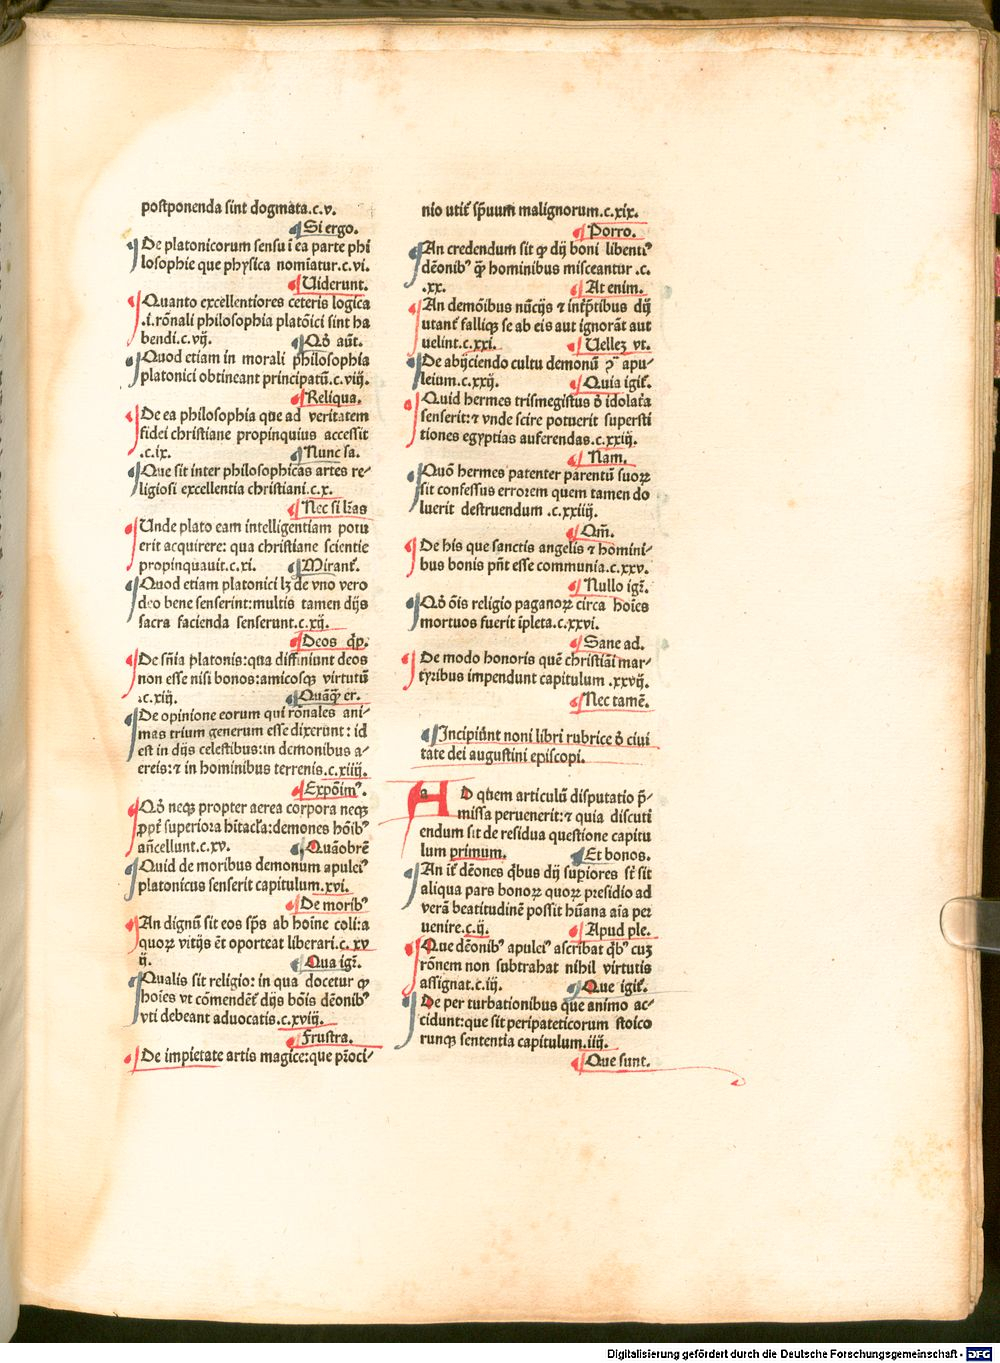 postponenda sint dogmata.c.v.
¶Si ergo.
De platonicorum sensu ī ea parte phi
losophie que physica nomiatur.c.vi.
¶Uiderunt.
Quanto excellentiores ceteris logica
.i.rōnali philosophia platōici sint ha
bendi.c.vij.
¶Qō aūt.
Quod etiam in morali philosophia
platonici obtineant principatū.c.viij.
¶Reliqua.
De ea philosophia que ad veritatem
fidei christiane propinquius accessit
.c.ix.
¶Nunc sa.
Que sit inter philosophicas artes re⸗
ligiosi excellentia christiani.c.x.
¶Nec si lr̄as
Unde plato eam intelligentiam potu
erit acquirere: qua christiane scientie
propinquauit.c.xi.
¶Mirant᷑.
Quod etiam platonici lꝫ de vno vero
deo bene senserint:multis tamen dijs
sacra facienda senserunt.c.xij.
¶Deos q̄ꝑ.
De sn̄ia platonis:qua diffiniunt deos
non esse nisi bonos:amicosqꝫ virtutū
.c.xiij.
¶Quāqꝫ er.
De opinione eorum qui rōnales ani⸗
mas trium generum esse dixerunt: id
est in dijs celestibus:in demonibus a⸗
ereis:⁊ in hominibus terrenis.c.xiiij.
¶Expōimꝰ.
Qō neqꝫ propter aerea corpora neqꝫ
ꝓpt᷑ superiora hitacl̄a:demones hōibꝰ
an̄cellunt.c.xv.
¶Quāobrē
Quid de moribus demonum apuleiꝰ
platonicus senserit capitulum.xvi.
¶De moribꝰ
An dignū sit eos sp̄s ab hoīne coli:a
quoꝝ vitijs ēt oporteat liberari.c.xv
ij.
¶Qua igr̄.
Qualis sit religio: in qua docetur ꝙ
hoīes vt cōmendēt᷑ dijs bōis dēonibꝰ
vti debeant aduocatis.c.xviij.
¶Frustra.
De impietate artis magice:que pr̄oci⸗
nio utit᷑ sp̄uum malignorum.c.xix.
¶Porro.
An credendum sit ꝙ dij boni libentiꝰ
dēonibꝰ q̄ꝫ hominibus misceantur .c.
.xx.
¶At enim.
An demōibus nūcijs ⁊ int̄ꝑtibus dij
utant᷑ falliqꝫ se ab eis aut ignorāt aut
uelint.c.xxi.
¶Uellez vt.
De abijciendo cultu demonū ꝯͣ apu⸗
leium.c.xxij.
¶Quia igit᷑.
Quid hermes trismegistus ō idolatr̄a
senserit:⁊ vnde scire potuerit supersti
tiones egyptias auferendas.c.xxiij.
¶Nam.
Quō hermes patenter parentū suoꝝ
sit confessus errorem quem tamen do
luerit destruendum .c.xxiiij.
¶Om̄.
De his que sanctis angelis ⁊ homini⸗
bus bonis pn̄t esse communia.c.xxv.
¶Nullo igr̄.
Qō ōis religio paganoꝝ circa hoīes
mortuos fuerit īpleta.c.xxvi.
¶Sane ad.
De modo honoris quē christiāi mar⸗
tyribus impendunt capitulum .xxvij.
¶Nec tamē.
¶Incipiūnt noni libri rubrice ō ciui
tate dei augustini episcopi.
AD quem articulū disputatio p̄⸗
missa peruenerit:⁊ quia discuti
endum sit de residua questione capitu
lum primum.
¶Et bonos.
An it᷑ dēones q̄bus dij supiores st᷑ sit
aliqua pars bonoꝝ quoꝝ presidio ad
verā beatitudinē possit hūana aīa per
uenire.c.ij.
¶Apud ple.
Que dēonibꝰ apuleiꝰ ascribat q̄bꝰ cuꝫ
rōnem non subtrahat nihil virtutis
assignat.c.iij.
¶Que igit᷑.
De per turbationibus que animo ac⸗
cidunt:que sit peripateticorum stoico
runqꝫ sententia capitulum.iiij.
¶Que sunt.
Digitalisierung gefördert durch die Deutsche Forschungsgemeinschaft - DFG